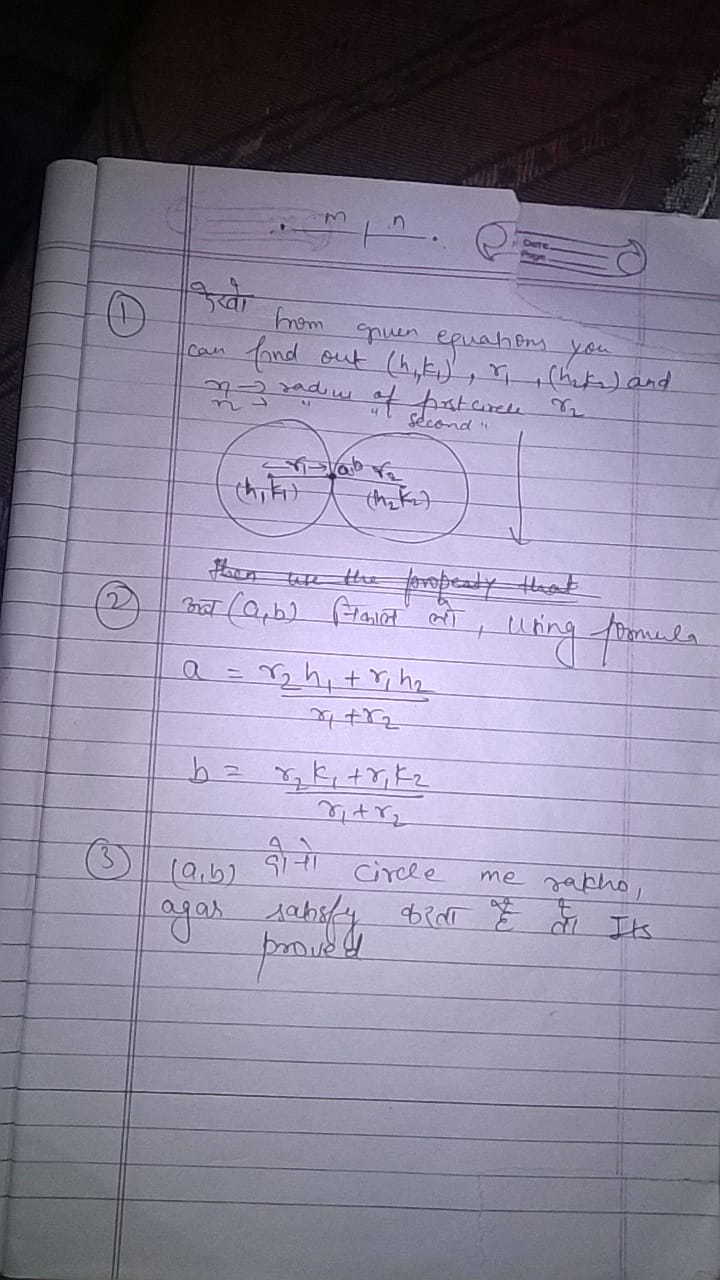 m n
Date
Page
① देखो
from given equations you
can find out (h₁k₁), r₁, (h₂k₂) and
r₁ → radius of first circle r₂
r₂ → " " second "
r₁ a,b r₂
(h₁k₁) (h₂k₂)
then use the property that
② अब (a,b) निकाल लो, using formula
a = r₂h₁ + r₁h₂
r₁ + r₂
b = r₂k₁ + r₁k₂
r₁ + r₂
③ (a,b) दोनो circle me rakho,
agar satisfy करता है तो Its
proved